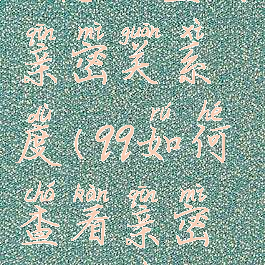 qīn mì guān xì
亲密关系
dù rú hé
度(99如何
chá kàn qīn mì
查看亲密